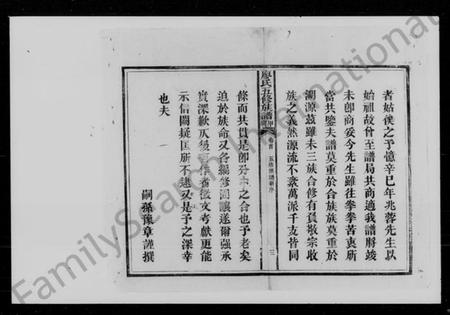 者姑俟之予憶辛巳年兆蓉先生以
始祖故曾至譜局共商適我譜將竣
未卽商妥今先生雖往拳拳苦衷所
當共鑒夫譜莫重於合族族莫重於
溯源茲雖未三族合修有負敬宗收
族之義然源流不紊萬派千支皆同
廖氏五修族譜
卷首
五修族譜新序
三
條而共貫是卽分亦之合也予老矣
迫於族命又各編修回讓遂爾强承
實深歉仄後有作者徵文考獻更能
示信闕疑匡所不逮又是予之深幸
也夫
嗣孫豫章謹撰
FamilySearch International